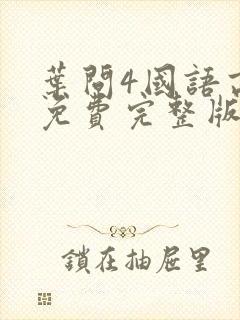 葉問4國語高
免費完整版
鎖在抽屜里